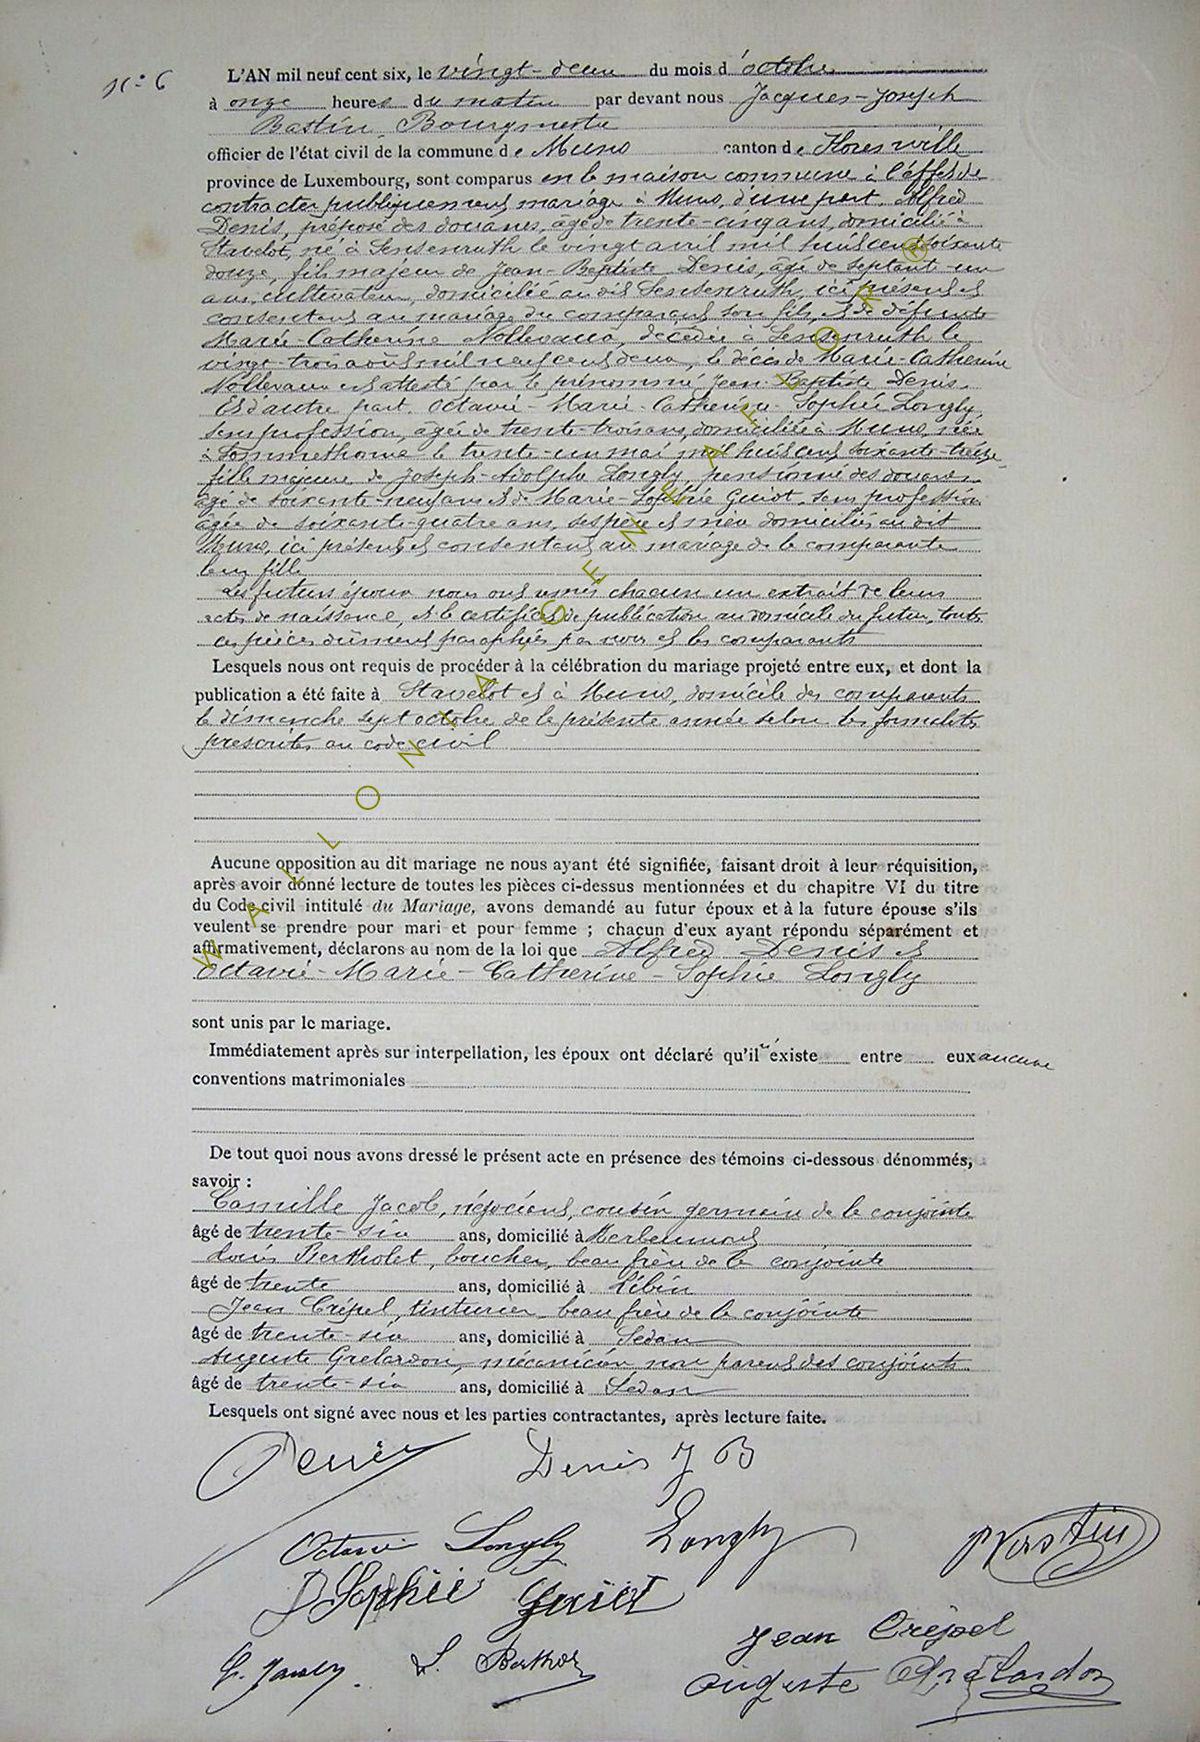 N° 6
L'AN mil neuf cent six, le vingt-deux du mois d'octobre
à onze heures du matin par devant nous Jacques-Joseph
Bastin Bourgmestre
officier de l'état civil de la commune de Muno canton de Florenville
province de Luxembourg, sont comparus en la maison commune à l'effet de
contracter publiquement mariage à Muno, d'une part, Alfred
Denis, préposé des douanes, âgé de trente-cinq ans, domicilié à
Stavelot, né à Sensenruth le vingt avril mil huit cent soixante
douze, fils majeur de Jean-Baptiste Denis, âgé de septante-un
ans, cultivateur, domicilié au dit Sensenruth, ici présent et
consentant au mariage du comparant son fils, et de défunte
Marie-Catherine Nollevaux, décédée à Sensenruth le
vingt-trois août mil neuf cent deux, le décès de Marie-Catherine
Nollevaux est attesté par le prénommé Jean-Baptiste Denis.
Et d'autre part, Octavie-Marie-Catherine-Sophie Longly,
sans profession, âgée de trente-trois ans, domiciliée à Muno, née
à Sommethonne le trente-un mai mil huit cent soixante-treize
fille majeure de Joseph-Adolphe Longly, pensionné des douanes
âgé de soixante-neuf ans et de Marie-Sophie Guiot, sans profession
âgée de soixante-quatre ans, ses père et mère domiciliés au dit
Muno, ici présents et consentant au mariage de la comparante
leur fille
Les futurs époux nous ont remis chacun un extrait de leurs
actes de naissance, et le certificat de publication au domicile du futur, toutes
ces pièces dûment paraphées par nous et les comparants
Lesquels nous ont requis de procéder à la célébration du mariage projeté entre eux, et dont la
publication a été faite à Stavelot et à Muno, domicile des comparants
le dimanche sept octobre de la présente année selon les formalités
prescrites au code civil
Aucune opposition au dit mariage ne nous ayant été signifiée, faisant droit à leur réquisition,
après avoir donné lecture de toutes les pièces ci-dessus mentionnées et du chapitre VI du titre
du Code civil intitulé du Mariage, avons demandé au futur époux et à la future épouse s'ils
veulent se prendre pour mari et pour femme ; chacun d'eux ayant répondu séparément et
affirmativement, déclarons au nom de la loi que Alfred Denis et
Octavie-Marie-Catherine-Sophie Longly
sont unis par le mariage.
Immédiatement après sur interpellation, les époux ont déclaré qu'il n'existe entre eux aucune
conventions matrimoniales
De tout quoi nous avons dressé le présent acte en présence des témoins ci-dessous dénommés,
savoir :
Camille Jacob, négociant, cousin germain de la conjointe
âgé de trente-six ans, domicilié à Herbeumont
Louis Bertholet, boucher, beau frère de la conjointe
âgé de trente ans, domicilié à Libin
Jean Crépel, teinturier, beau frère de la conjointe
âgé de trente-six ans, domicilié à Sedan
Auguste Grelardon, mécanicien, non parent des conjoints
âgé de trente-six ans, domicilié à Sedan
Lesquels ont signé avec nous et les parties contractantes, après lecture faite.
Denis Denis J B
Octavie Longly Longly Bastin
Sophie Guiot
Jean Crépel
C. Jacob L. Berthol
Auguste Grelardon
WALLONIA GENEALOR ®